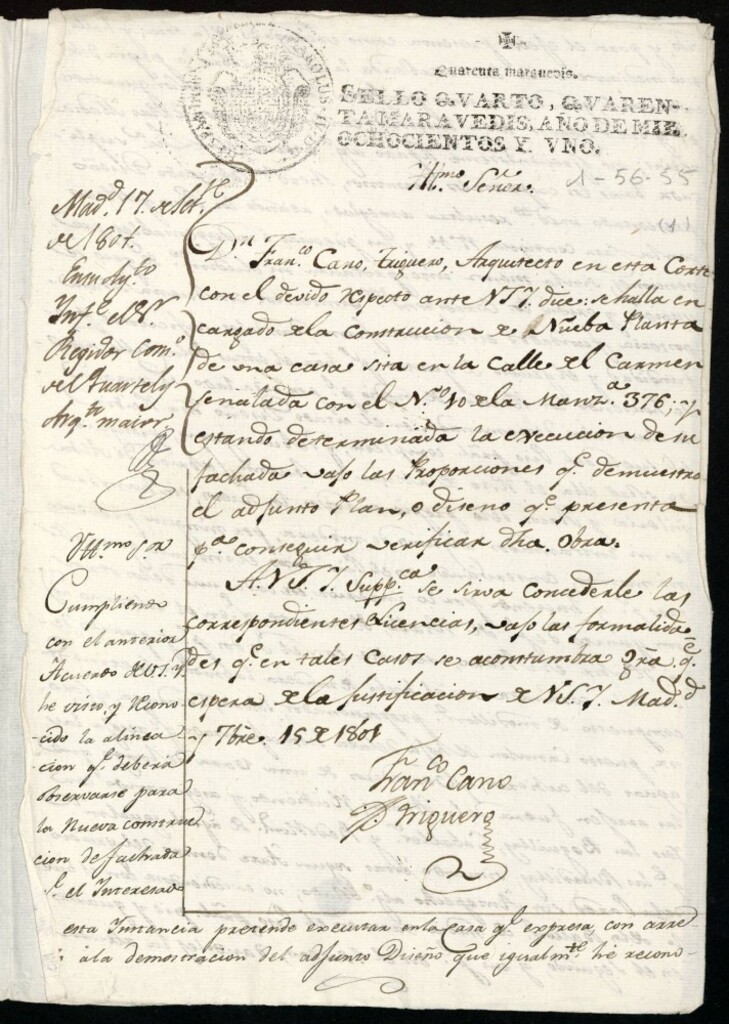 CAROLUS
Quarenta maravedis.
SELLO QVARTO, QVAREN-
TA MARAVEDIS, AÑO DE MIL
OCHOCIENTOS Y VNO.
Yll.mo Señor.
1-56-55
(1)
Mad.d 17. de Set.e
de 1801.
En su Ay.to
Inf.e el S.r
Regidor Com.o
del Quartel y
Arq.to maior
D.n Fran.co Cano, Triguero, Arquitecto en esta Corte
con el devido respecto ante VSY. dice: se halla en
cargado de la Construccion de Nueba Planta
de una casa sita en la Calle del Carmen
señalada con el N.o 10 de la Manz.a 376; y
estando determinada la execucion de su
fachada vajo las Proporciones q.e demuestra
el adjunto Plan, o diseno q.e presenta
p.a conseguir verificar dha. Obra.
A. VSY. Supp.ca se sirva concederle las
correspondientes Licencias, vajo las formalida
des q.e en tales Casos se acostumbra Gra. q.e
espera de la justificacion de VSY. Mad.d
y 7bre. 15 de 1801
Fran.co Cano
Triguero
Yll.mo S.or
Cumpliendo
con el anterior
Acuerdo de VSY.
he visto, y recono
-cido la alinea
cion q.e deberá
observarse para
la Nueva construc
cion de fachada
q.e el Interesado
esta Instancia pretende executar en la Casa q.e expresa, con arre-
à la demostracion del adjunto Diseño que igualm.te he recono-